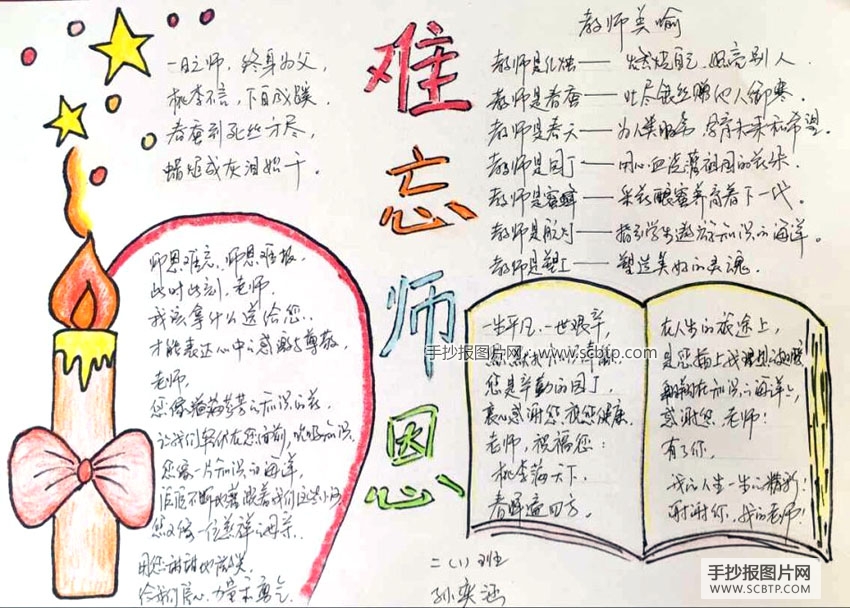 一日之师，终身为父，
桃李不言，下自成蹊。
春蚕到死丝方尽，
蜡炬成灰泪始干。
难忘师恩
教师美喻
教师是红烛——燃烧自己，照亮别人
教师是春蚕——吐尽银丝赠他人御寒。
教师是春天——为人类服务，孕育未来和希望。
教师是园丁——用心血浇灌祖国的花朵。
教师是蜜蜂——采花酿蜜养育着下一代。
教师是航灯——指引学生遨游知识的海洋。
教师是塑工——塑造美好的灵魂。
师恩难忘，师恩难报
此时此刻，老师。
我该拿什么送给您..
才能表达心中的感激与尊敬
老师，
您像满芬芳的知识的花
让我们在您面前，知识。
您像一片知识的海洋，
不断地着我们这些小
您又像一位慈祥的母亲..
用您甜甜地微笑
给我们信心、力量和勇气
一生平凡，一世艰辛，
手抄报图片网 www.scbtp.com
您是辛勤的园丁，
衷心感谢您，祝您健康。
老师，祝福您：
桃李满天下，
春晖遍四方。
在人生的旅途上，
是您插上我理想的翅膀
翱翔在知识的海洋上，
感谢您，老师！
有了你，
我的人生一生的精彩！
谢谢你，我的老师！
二（1）班
孙奕涵
手抄报图片网
WWW.SCBTP.COM